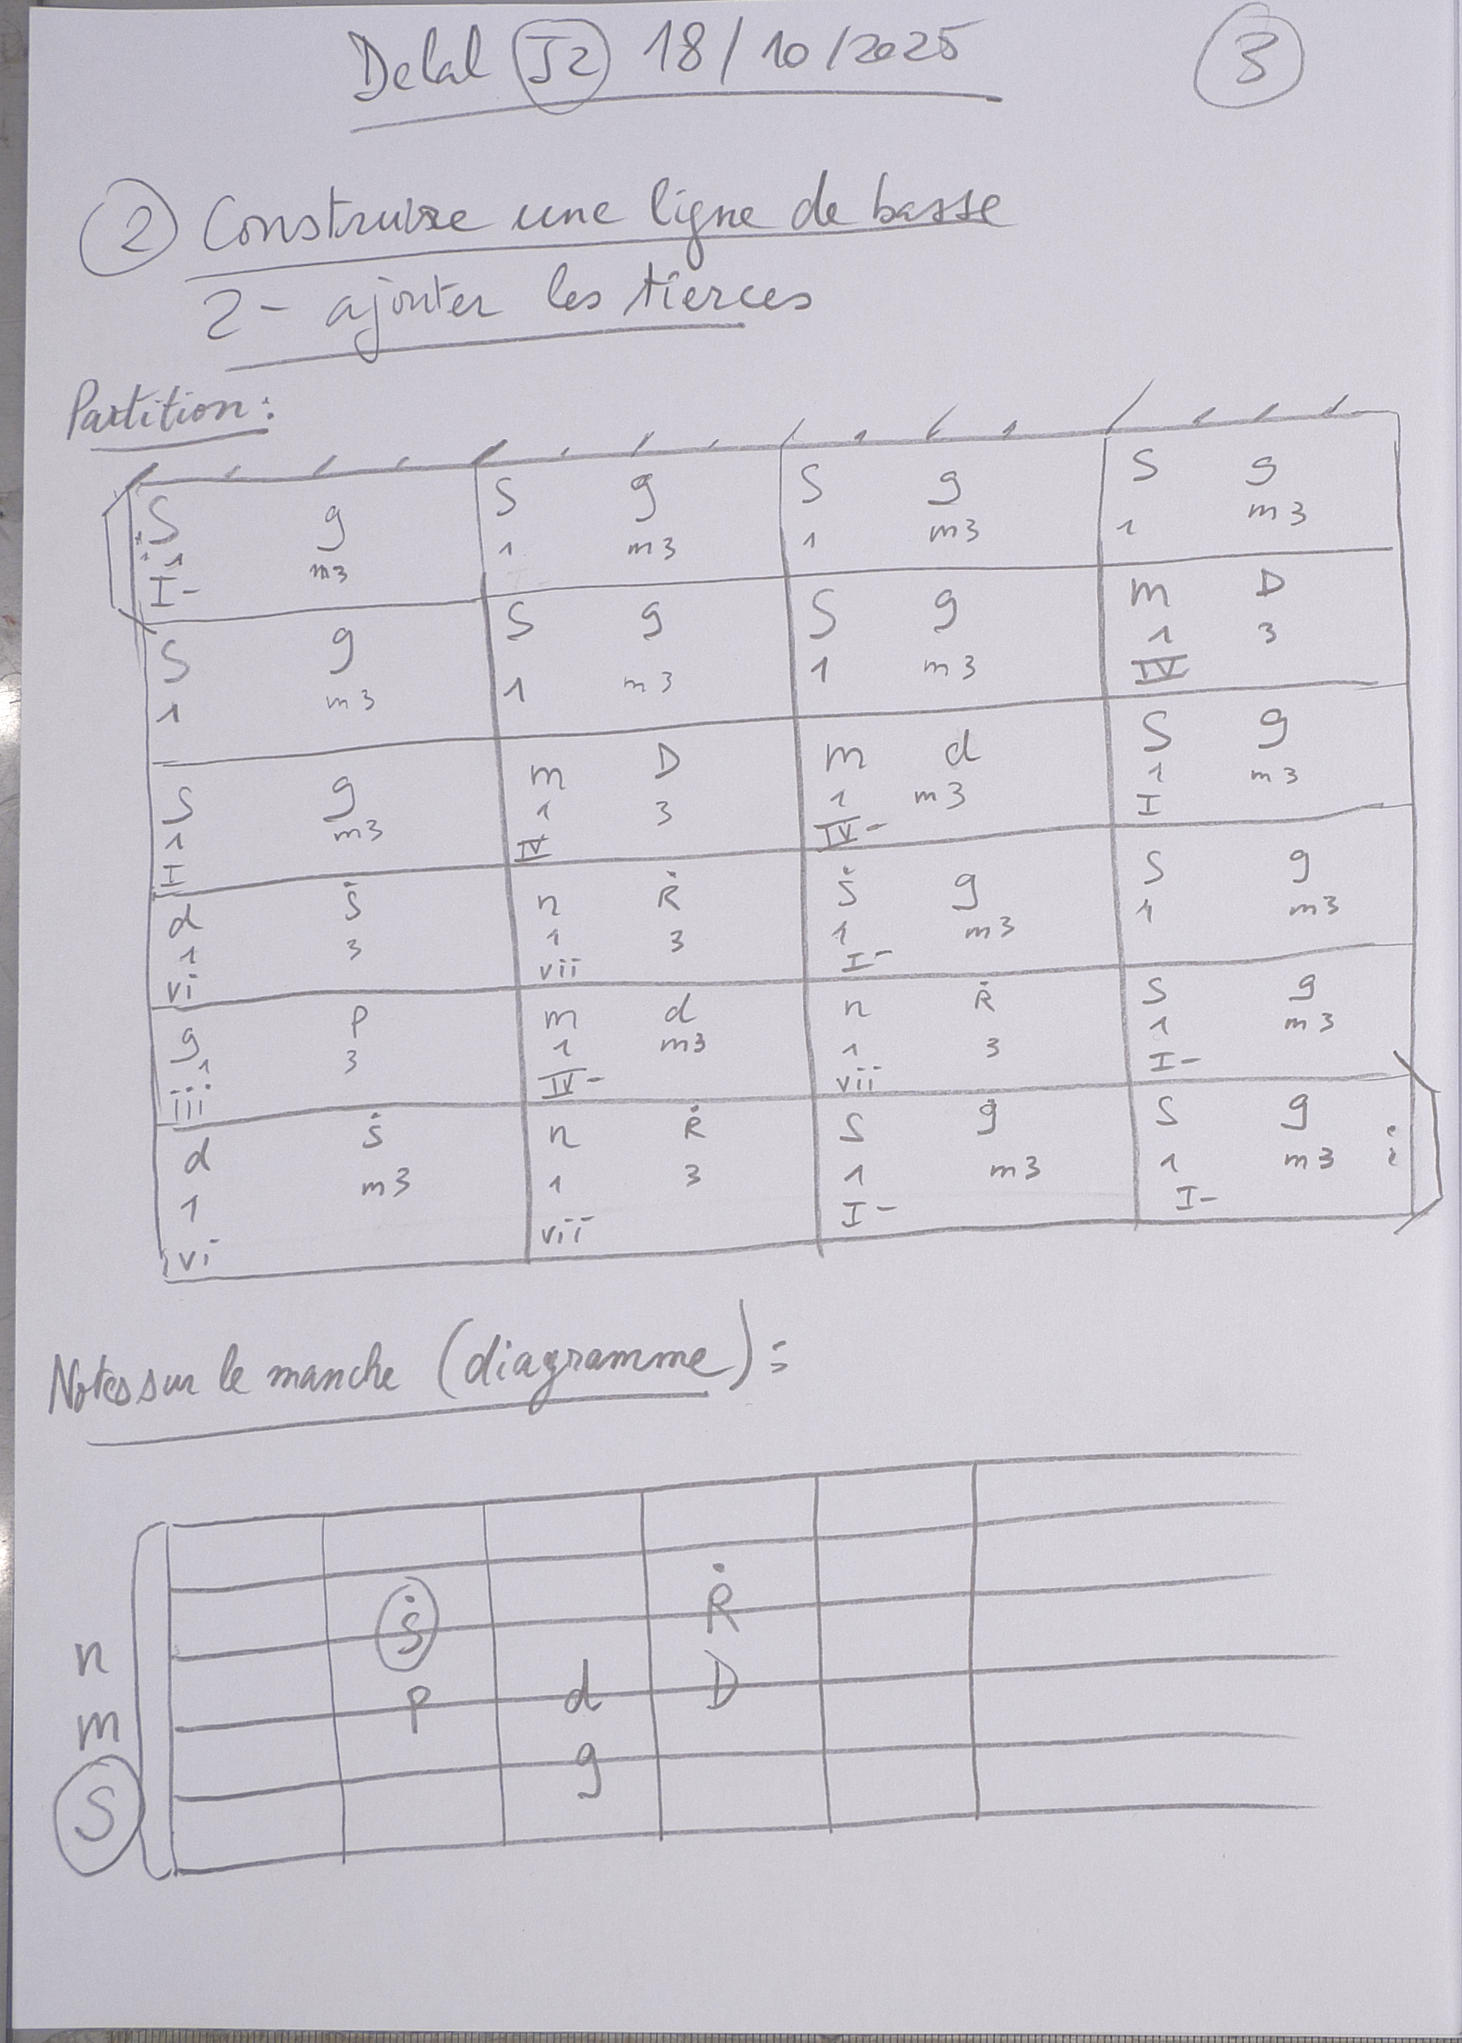 Delal J2 18/10/2025 3
2 Construire une ligne de basse
2- ajouter les tierces
Partition:
S g S g S g S g
1 m3 1 m3 1 m3 1 m3
I-
S g S g S g m D
1 m3 1 m3 1 m3 1 3
IV
S g m D m d S g
1 m3 1 3 1 m3 1 m3
I IV IV- I
d Ṡ n Ṙ Ṡ g S g
1 3 1 3 1 m3 1 m3
vi vii I-
g P m d n Ṙ S g
1 3 1 m3 1 3 1 m3
iii IV- vii I-
d ṡ n Ṙ S g S g
1 m3 1 3 1 m3 1 m3
vi vii I- I-
Notes sur le manche (diagramme):
n Ṡ Ṙ
m P d D
S g